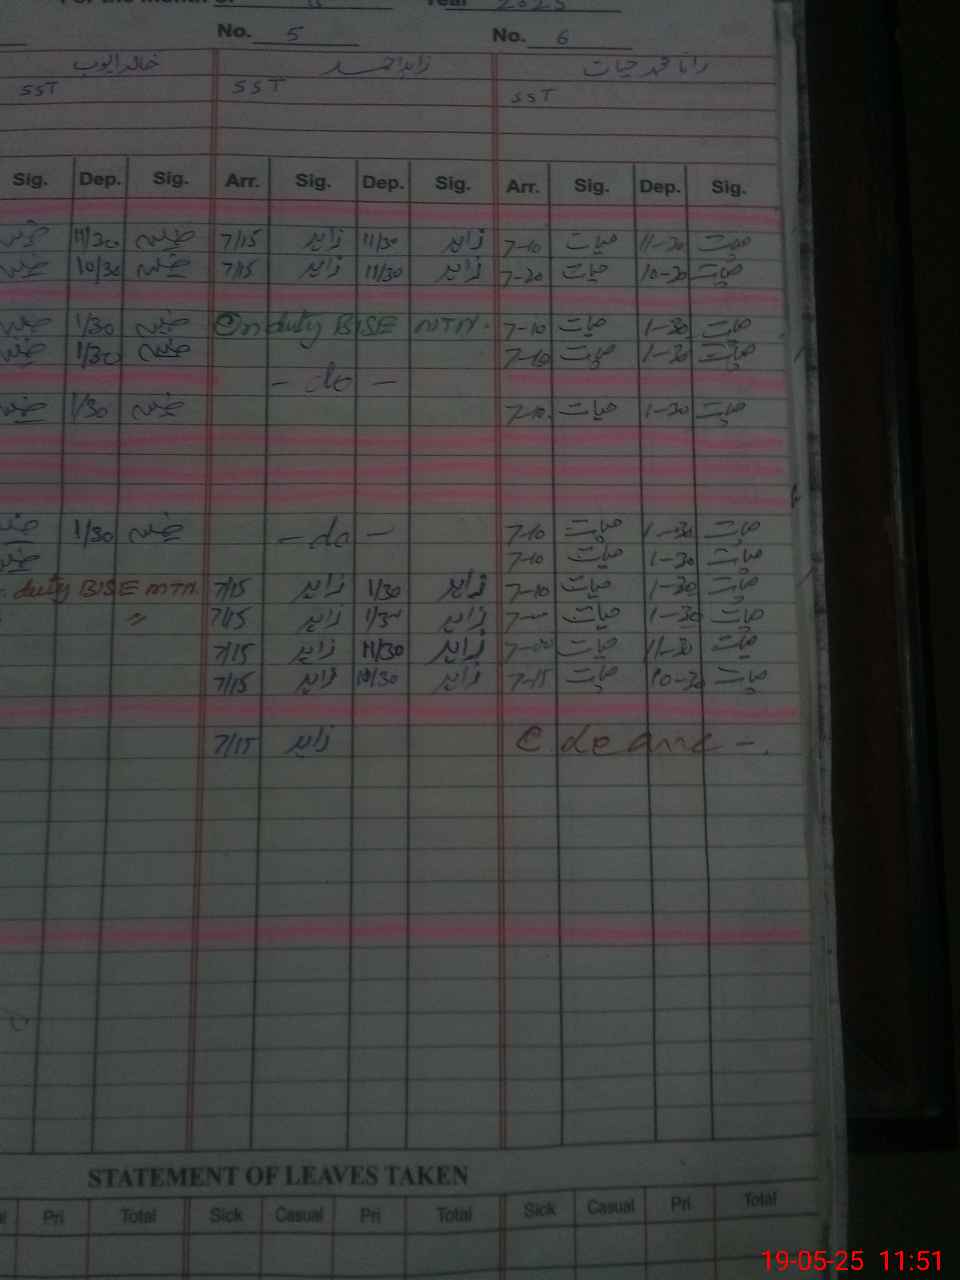 Year 2025
No. 5 No. 6
خالد ایوب زاہد احمد رانا محمد حیات
SST SST SST
Sig. Dep. Sig. Arr. Sig. Dep. Sig. Arr. Sig. Dep. Sig.
11/30 7/15 زاہد 11/30 زاہد 7-10 حیات 11-30 حیات
10/30 7/15 زاہد 11/30 زاہد 7-20 حیات 10-30 حیات
1/30 On duty BISE MTN. 7-10 حیات 1-30 حیات
1/30 7-10 حیات 1-30 حیات
- do -
1/30 7-10 حیات 1-30 حیات
1/30 - do - 7-10 حیات 1-30 حیات
7-10 حیات 1-30 حیات
duty BISE MTN. 7/15 زاہد 1/30 زاہد 7-10 حیات 1-30 حیات
〃 7/15 زاہد 1/30 زاہد حیات 1-30 حیات
7/15 زاہد 11/30 زاہد حیات 11-30 حیات
7/15 زاہد 10/30 زاہد 7-15 حیات 10-30 حیات
7/15 زاہد
STATEMENT OF LEAVES TAKEN
Pri Total Sick Casual Pri Total Sick Casual Pri Total
19-05-25 11:51